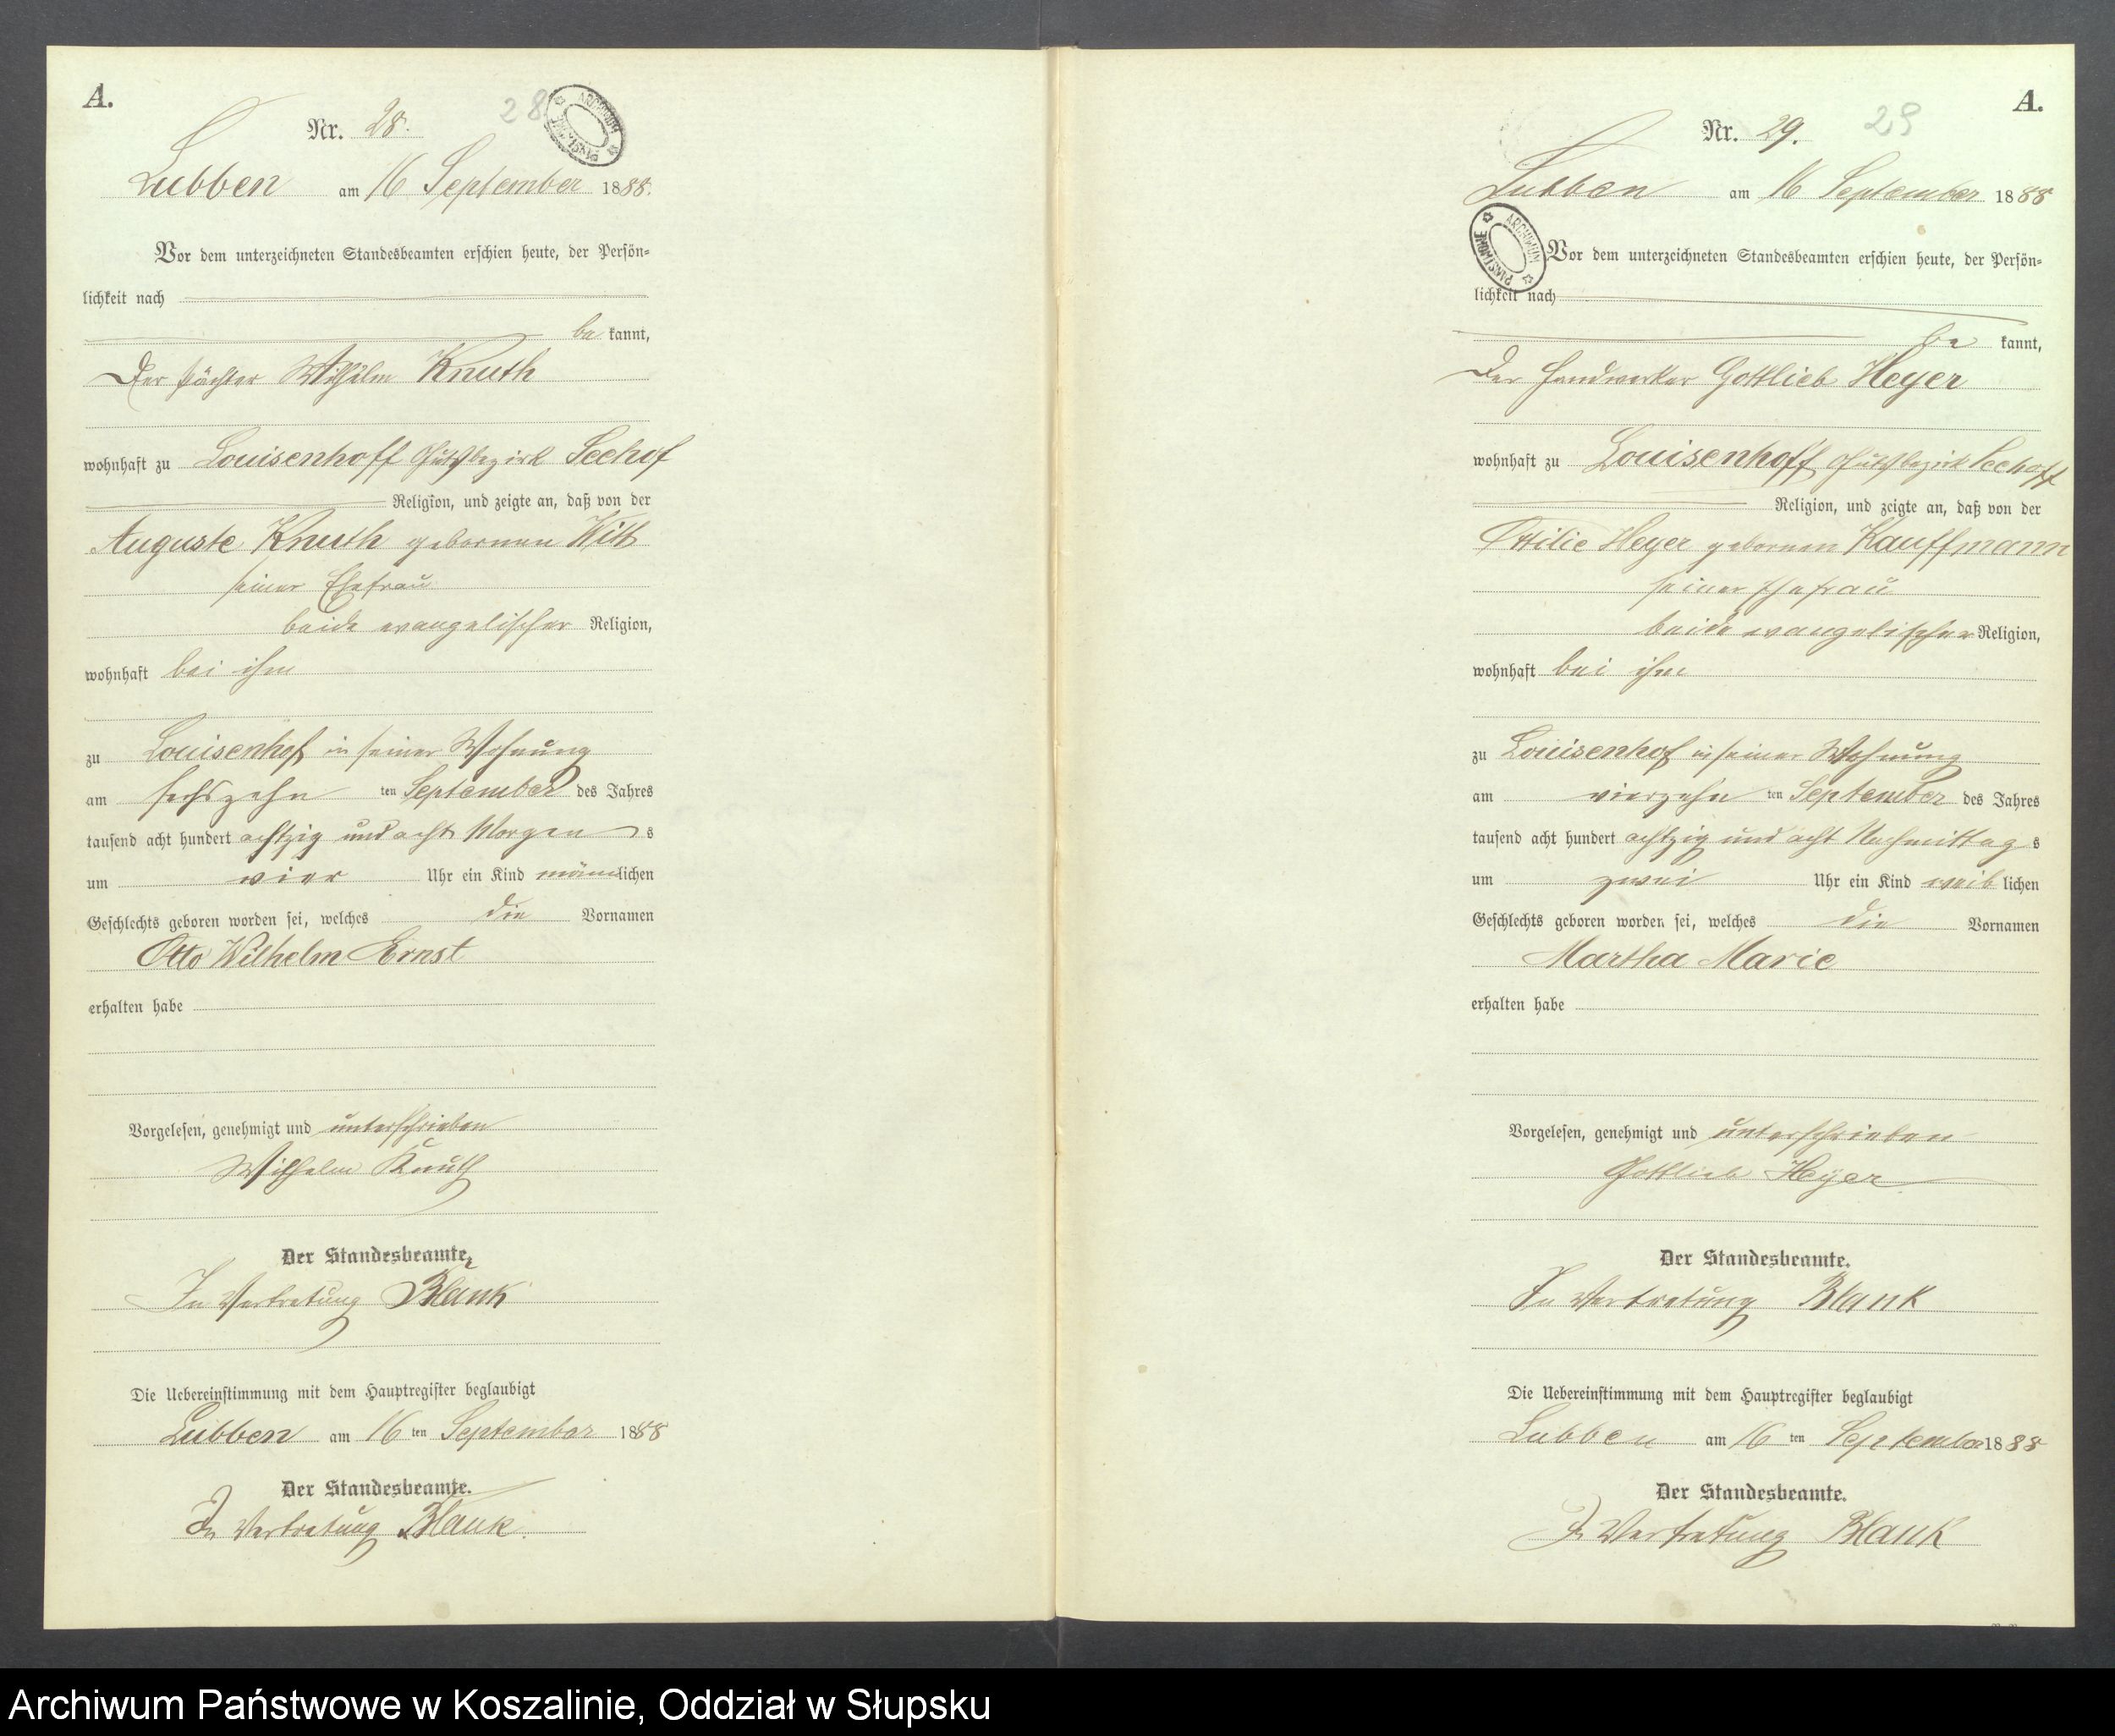 A.
Nr. 28.
28
ARCHIWUM PAŃSTWOWE
Lubben am 16 September 1888.
Vor dem unterzeichneten Standesbeamten erschien heute, der Persön=
lichkeit nach
be kannt,
Der Pächter Wilhelm Knuth
wohnhaft zu Louisenhoff Gutsbezirk Seehof
Religion, und zeigte an, daß von der
Auguste Knuth gebornen Witt
seiner Ehefrau
beide evangelischer Religion,
wohnhaft bei ihm
zu Louisenhof in seiner Wohnung
am sechszehn ten September des Jahres
tausend acht hundert achtzig und acht Morgen s
um vier Uhr ein Kind männlichen
Geschlechts geboren worden sei, welches die Vornamen
Otto Wilhelm Ernst
erhalten habe
Vorgelesen, genehmigt und unterschrieben
Wilhelm Knuth
Der Standesbeamte.
In Vertretung Blank
Die Uebereinstimmung mit dem Hauptregister beglaubigt
Lubben am 16 ten September 1888
Der Standesbeamte.
In Vertretung Blank.
A.
Nr. 29.
29
Lubben am 16 September 1888
ARCHIWUM PAŃSTWOWE
Vor dem unterzeichneten Standesbeamten erschien heute, der Persön=
lichkeit nach
be kannt,
Der Handwerker Gottlieb Heyer
wohnhaft zu Louisenhoff Gutsbezirk Seehoff
Religion, und zeigte an, daß von der
Ottilie Heyer gebornen Kauffmann
seiner Ehefrau
beide evangelischer Religion,
wohnhaft bei ihm
zu Louisenhof in seiner Wohnung
am vierzehn ten September des Jahres
tausend acht hundert achtzig und acht Nachmittag s
um zwei Uhr ein Kind weib lichen
Geschlechts geboren worden sei, welches die Vornamen
Martha Marie
erhalten habe
Vorgelesen, genehmigt und unterschrieben
Gottlieb Heyer
Der Standesbeamte.
In Vertretung Blank
Die Uebereinstimmung mit dem Hauptregister beglaubigt
Lubben am 16 ten September 1888
Der Standesbeamte.
In Vertretung Blank
Archiwum Państwowe w Koszalinie, Oddział w Słupsku